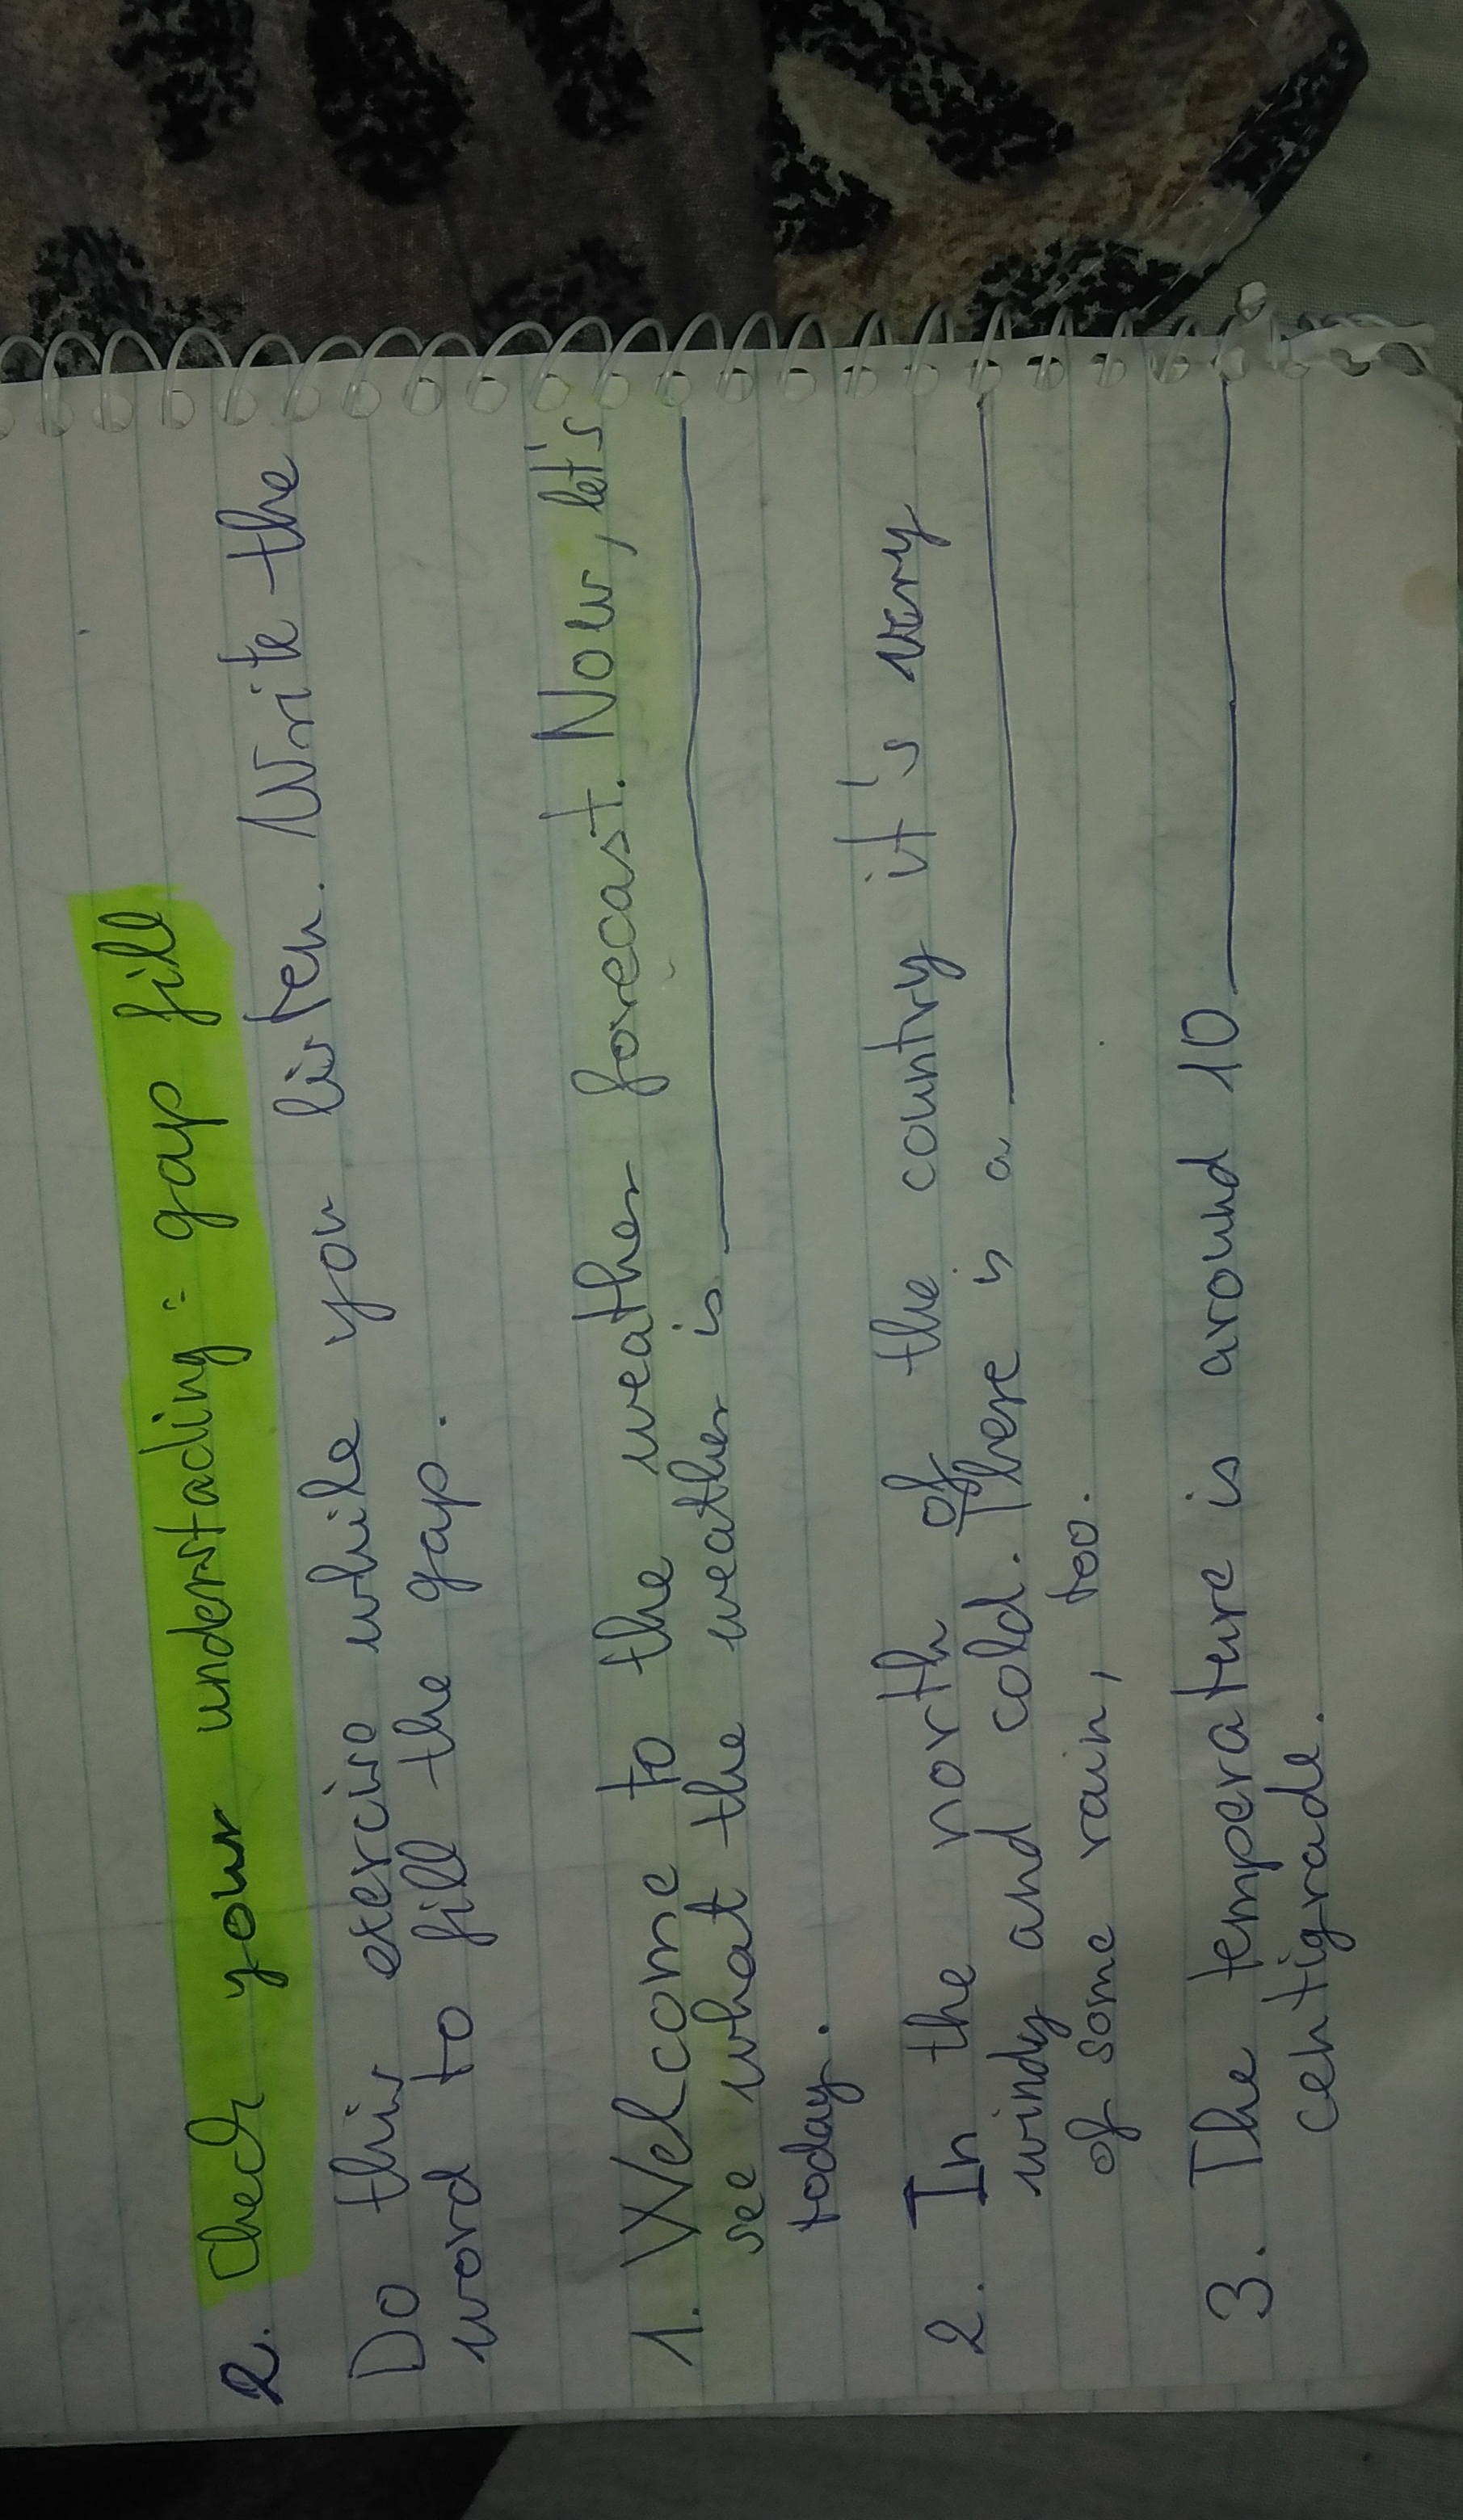 2. Check your understading: gap fill
Do this exercise while you listen. Write the
word to fill the gap.
1. Welcome to the weather forecast. Now, let's
see what the weather is ___
today.
2. In the north of the country it's very
windy and cold. There is a ___
of some rain, too.
3. The temperature is around 10 ___
centigrade.